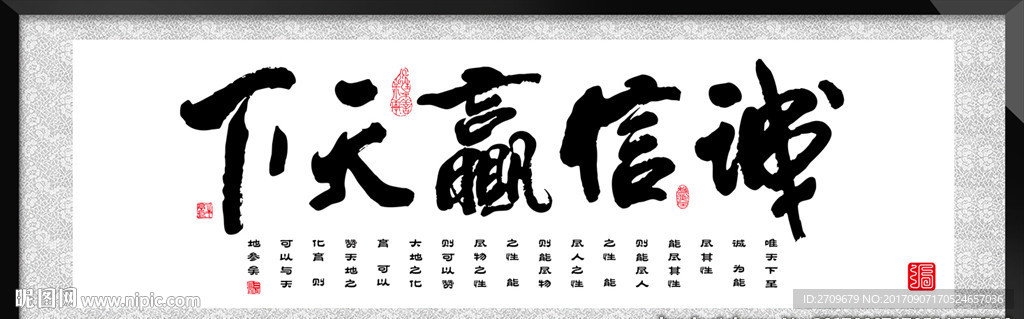 诚信赢天下
唯天下至
诚 为能
尽其性
能尽其性
则能尽人
之性 能
尽人之性
则能尽物
之性 能
尽物之性
则可以赞
天地之化
育 可以
赞天地之
化育 则
可以与天
地参矣
昵图网 www.nipic.com
ID:2709679 NO:20170907170524657036